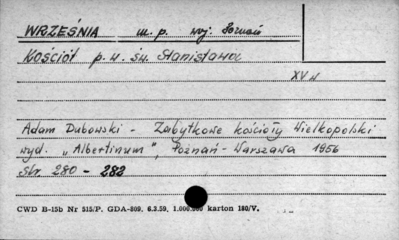 WRZEŚNIA m.p. woj. Poznań
Kościół p.w. św. Stanisława
XV w
Adam Dubowski - Zabytkowe kościoły Wielkopolski
wyd. "Albertinum", Poznań - Warszawa 1956
str. 280 - 282
CWD B-15b Nr 515/P. GDA-809. 6.3.59. 1.000.000 karton 180/V.